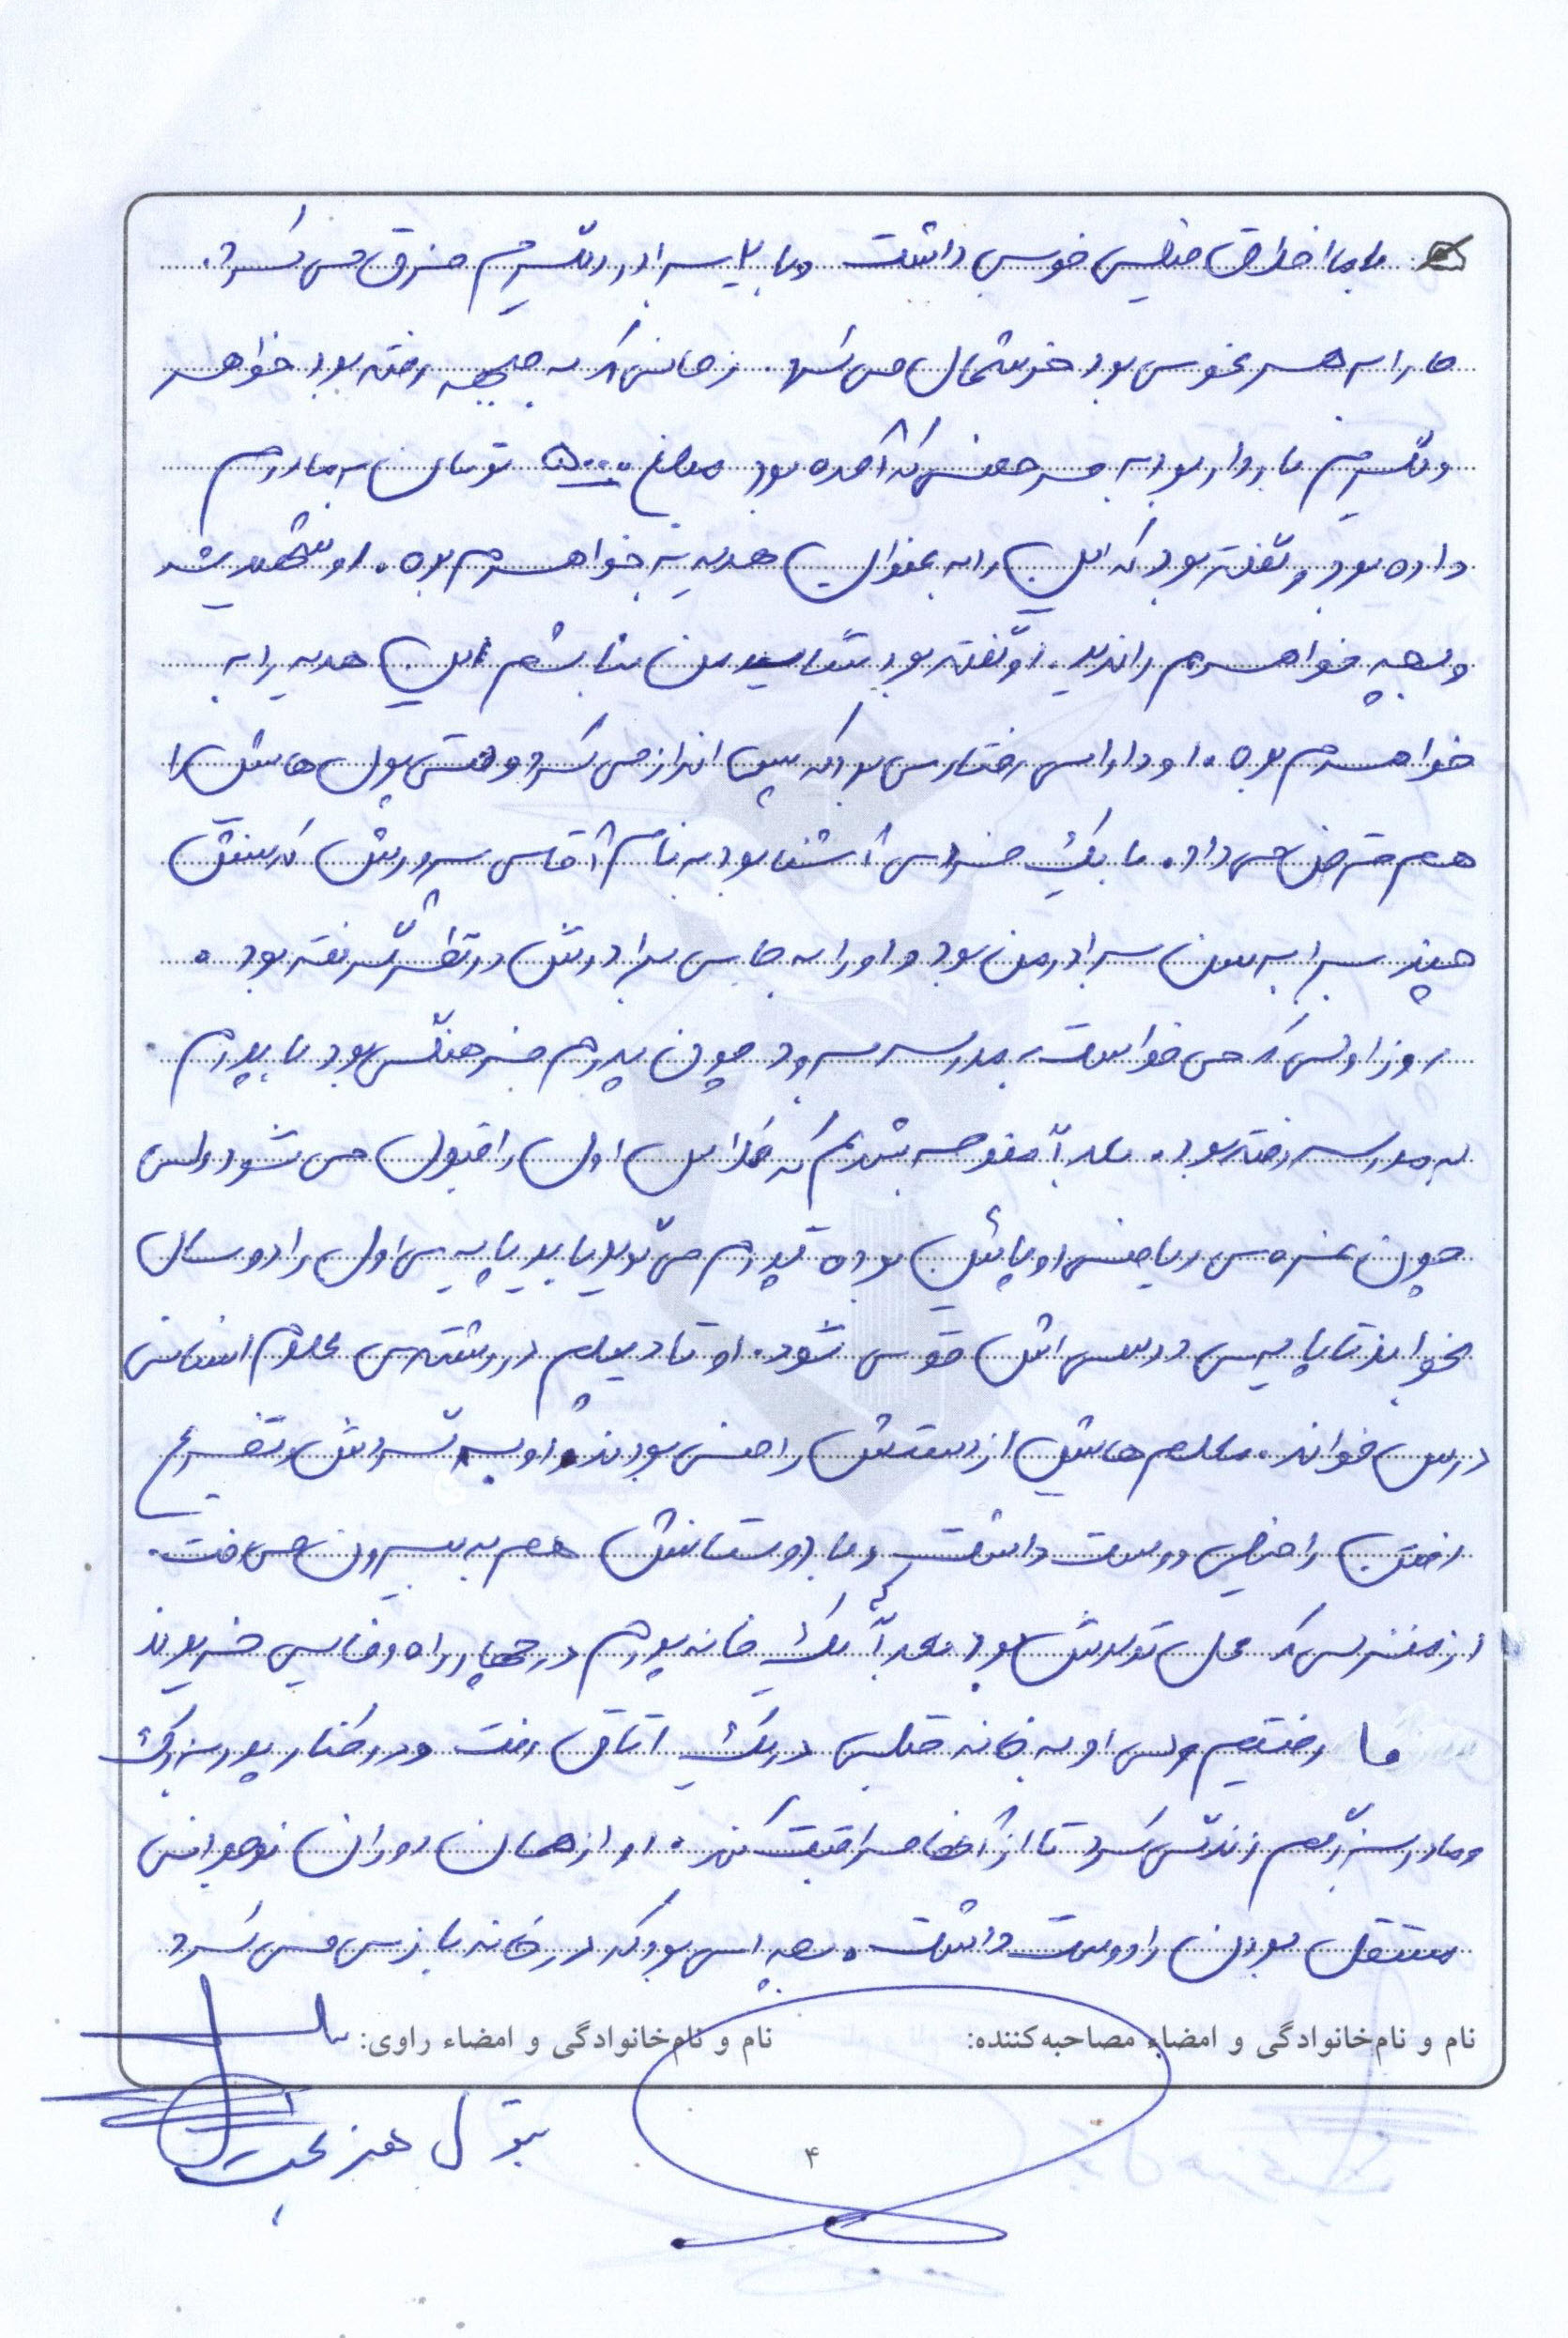 با ما اخلاق خیلی خوبی داشت و با ۲ برادر دیگرم فرق می کرد.
ما را به هر نحوی بود خوشحال می کرد. زمانی که به جبهه رفته بود خواهر
دیگرم باردار بود به مرخصی که آمده بود مبلغ ۵۰۰۰ تومان به مادرم
داده بود و گفته بود که این را به عنوان هدیه به خواهرم بده. او شهید شد
و بچه خواهرم را ندید. او گفته بود شاید من نباشم این هدیه را به
خواهرم بده. او دارای رفتاری بود که پس انداز می کرد و حتی پول هایش را
هم قرض می داد. با یک فردی آشنا بود به نام آقای پرورش که سنش
چند برابر سن برادر من بود و او را به جای برادرش در نظر گرفته بود.
روز اولی که می خواست به مدرسه برود چون پدرم فرهنگی بود با پدرم
به مدرسه رفته بود. بعداً متوجه شدیم که کلاس اول را قبول می شود ولی
چون نمره ی ریاضی او پائین بوده پدرم می گوید باید پایه ی اول را دو سال
بخواند تا پایه ی درسی اش قوی شود. او تا دیپلم در رشته ی علوم انسانی
درس خواند. معلم هایش از دستش راضی بودند. او به گردش و تفریح
رفتن را خیلی دوست داشت و با دوستانش هم به بیرون می رفت.
از منزلی که محل تولدش بود بعداً یک خانه پدرم در چهار راه وفایی خریدند
ما رفتیم ولی او به خانه قبلی در یک اتاق رفت و در کنار پدربزرگ
و مادربزرگم زندگی کرد تا از آنها مراقبت کند. او از همان دوران نوجوانی
مستقل بودن را دوست داشت. بچه ای بود که در خانه بازی می کرد
نام و نام‌خانوادگی و امضاء مصاحبه‌کننده:
نام و نام‌خانوادگی و امضاء راوی:
بتول هنربخت
۴